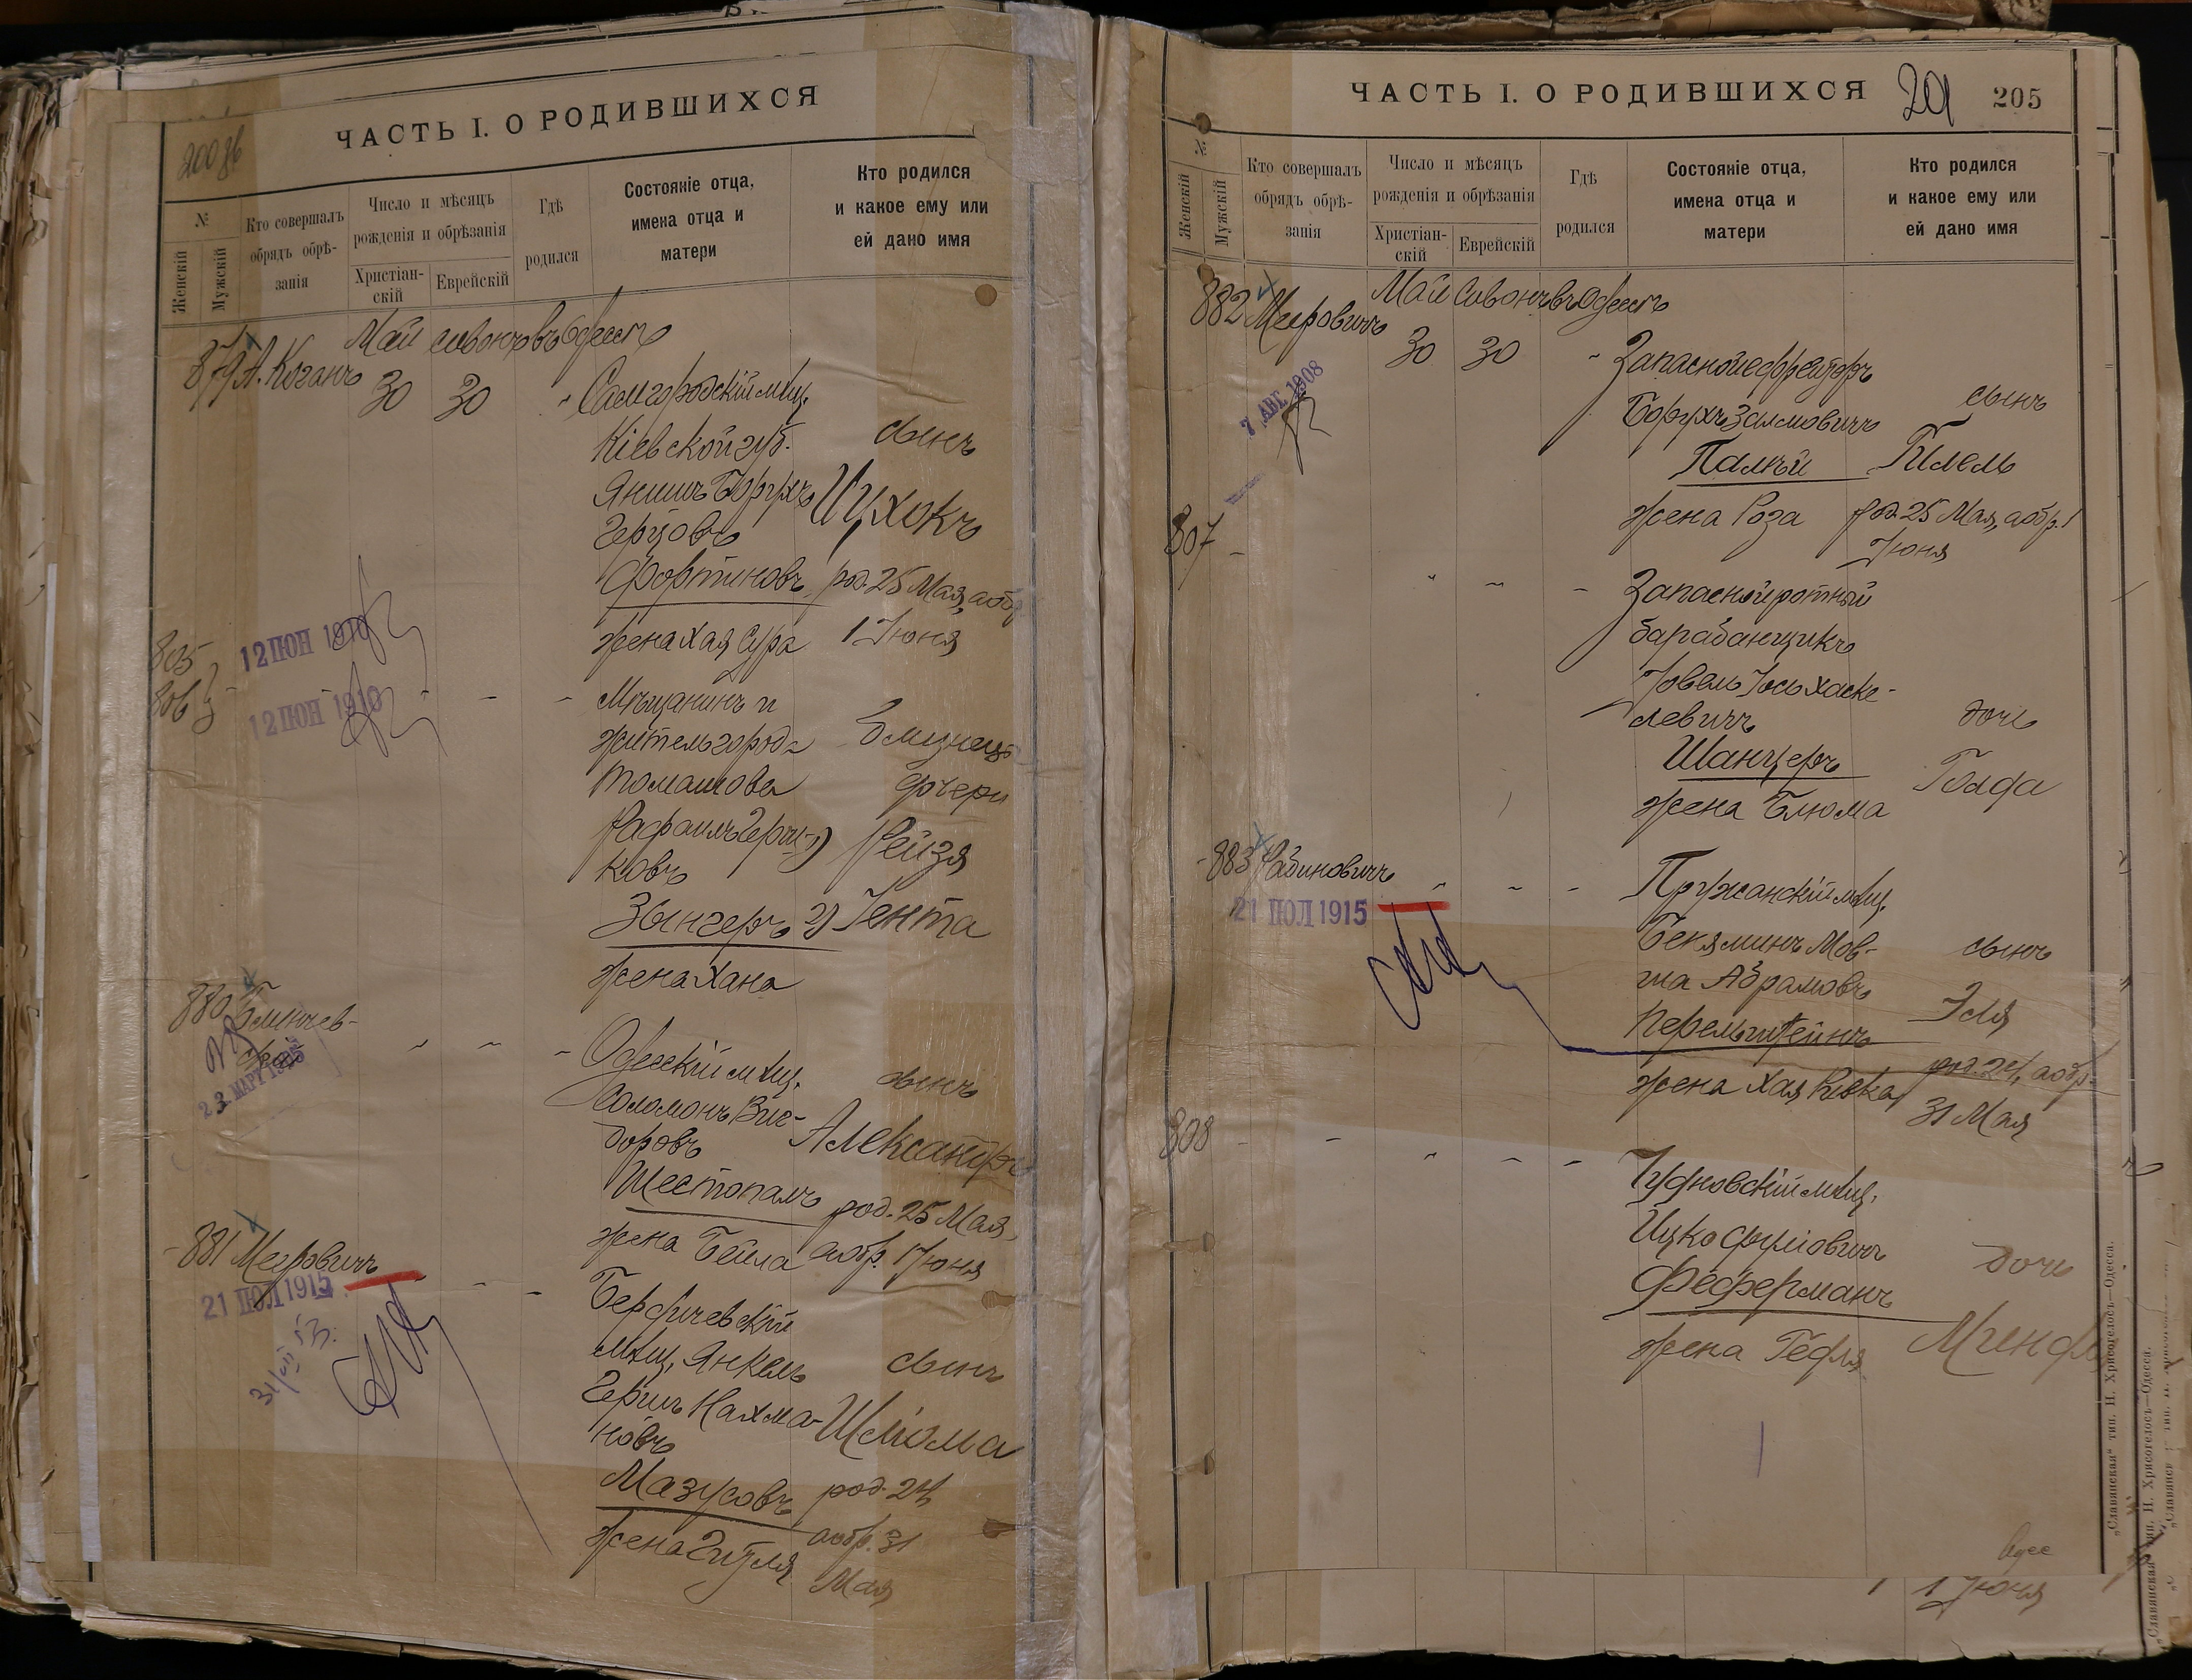 ЧАСТЬ I. О РОДИВШИХСЯ
200 об
№
Женскій
Мужскій
Кто совершалъ обрядъ обрѣ-
занія
Число и мѣсяцъ
рожденія и обрѣзанія
Христіан-
скій
Еврейскій
Гдѣ
родился
Состояніе отца,
имена отца и
матери
Кто родился
и какое ему или
ей дано имя
Май сивонъ въ Одессѣ
879 А. Коганъ 30 30 " Самгородскій мѣщ.
Кіевской губ. сынъ
Янкиль Борухъ Ицхокъ
Герцовъ
Фортиновъ род. 25 Мая, а обр.
жена Хая Сура 1 Іюня
805
806
12 ІЮН 1910
12 ІЮН 1910
Мѣщанинъ и
житель города близнецы
Томашова дочери
Рафаилъ Герш- 1) Рейзя
ковъ
Зынгеръ 2) Іента
жена Хана
880
23 МАРТ
Одесскій мѣщ. сынъ
Соломонъ Виг-
доровъ Александръ
Шестопалъ род. 25 Мая,
жена Бейла а обр. 1 Іюня
881 Мееровичъ
21 ІЮЛ 1915
Бердичевскій
мѣщ. Янкель сынъ
Гершъ Нахма- Шлёма
новъ
Мазусовъ род. 24,
жена Гитля а обр. 31
Мая
ЧАСТЬ I. О РОДИВШИХСЯ
201
205
№
Женскій
Мужскій
Кто совершалъ
обрядъ обрѣ-
занія
Число и мѣсяцъ
рожденія и обрѣзанія
Христіан-
скій
Еврейскій
Гдѣ
родился
Состояніе отца,
имена отца и
матери
Кто родился
и какое ему или
ей дано имя
Май Сивонъ въ Одессѣ
882 Мееровичъ 30 30 " Запасной ефрейторъ
7 АВГ 1908
Борухъ Залмовичъ сынъ
Палѣй Гилель
жена Роза род. 25 Мая, а обр. 1
Іюня
807
Запасной ротный
барабанщикъ
Іовель Іось Хаске-
левичъ дочь
Шанцеръ Голда
жена Блюма
883 Рабиновичъ
21 ІЮЛ 1915
Пружанскій мѣщ.
Беняминъ Мов- сынъ
ша Абрамовъ
Перельштейнъ Эля
жена Хая Ривка род. 24, а обр.
31 Мая
808
Чудновскій мѣщ.
Ицко Фулиовичъ дочь
Феферманъ
жена Гедля
1 Іюня
„Славянская“ тип. Н. Хрисогелосъ—Одесса.